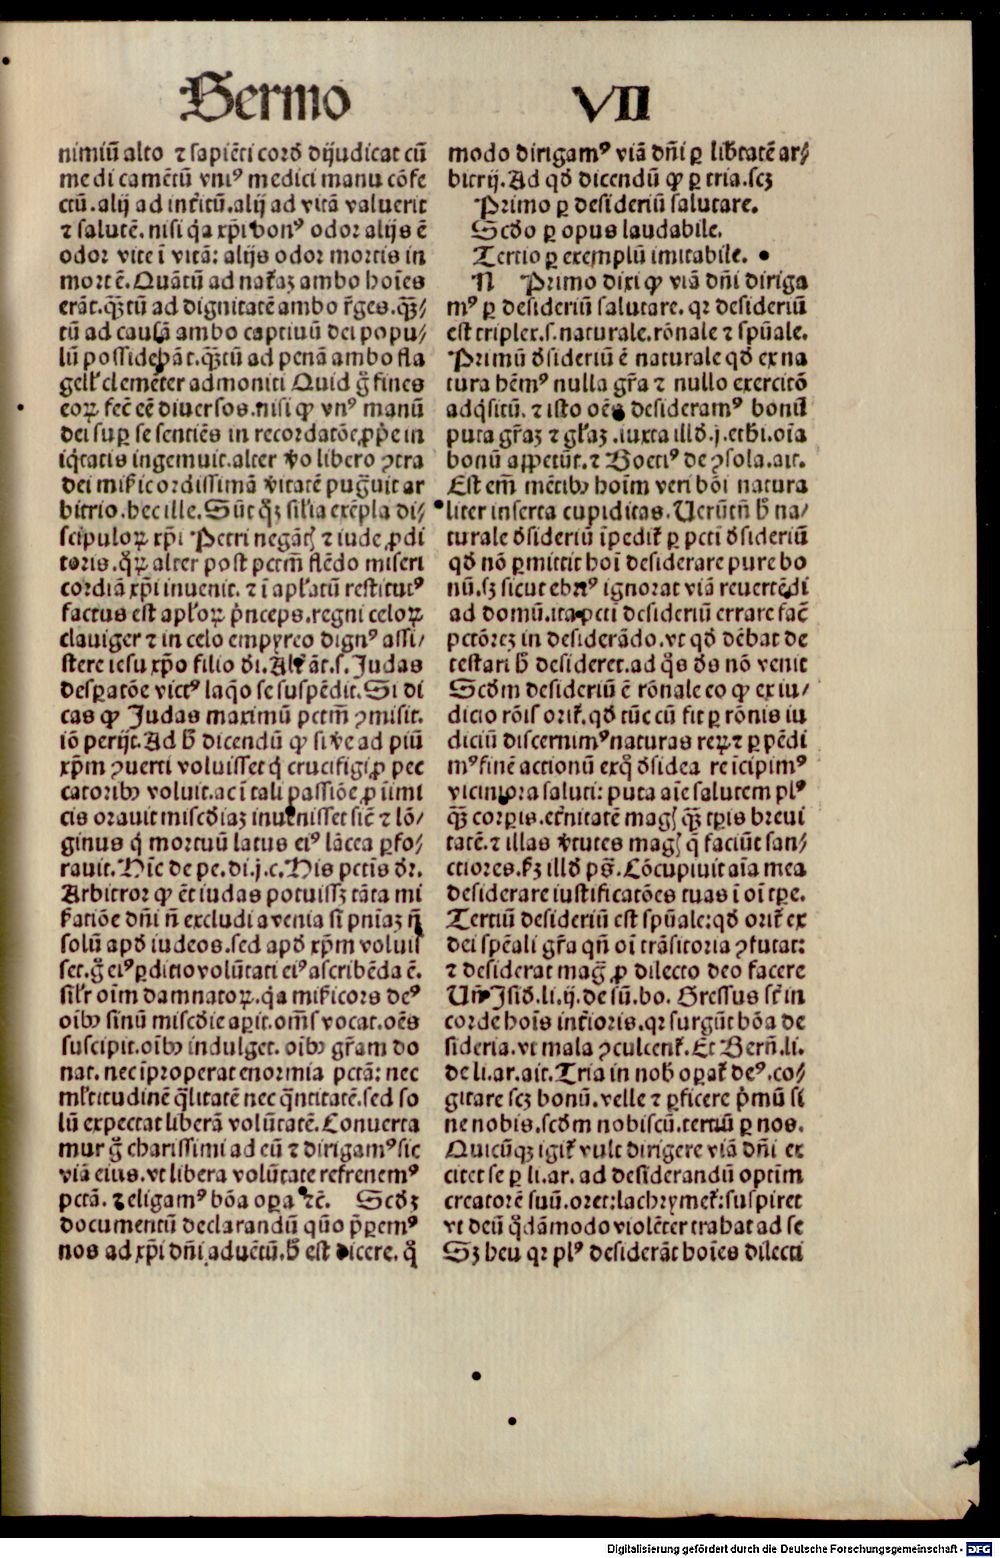 Sermo VII
nimiū alto ⁊ sapiēti cord dijudicat cū
medicamētū vniꝰ medici manu cōfe
ctū. alij ad inťitū. alij ad vitā valuerit
⁊ salutē. nisi q̇a xp̄i bonꝰ odor alijs ē
odor vite ī vitā: alijs odor mortis in
mortē. Quātū ad naťaꝫ ambo hoīes
erāt. q̄ꝫtū ad dignitatē ambo r̄ges. q̄ꝫ/
tū ad causā ambo captiuū dei popu/
lū possidebāt. q̄ꝫtū ad penā ambo fla
gell' clemēter admoniti Quid g̊ fines
eoꝝ fec̄ eē diuersos. nisi ꝙ vnꝰ manū
dei suꝑ se sentiēs in recordatōe ꝓp̄e in
iq̇tatis ingemuit. alter ṽo libero ↄtra
dei mis̃icordissimā ṽitatē pug̃uit ar
bitrio. hec ille. Sūt q̄ꝫ sil'ia exēpla di/
scipuloꝝ xp̄i Petri negāt̃ ⁊ iude ꝓdi
toris. q̊ꝝ alter post pctm̄ flēdo miseri
cordiā xp̄i inuenit. ⁊ ī apl'atū restitutꝰ
factus est apl'oꝝ p̄nceps. regni celoꝝ
clauiger ⁊ in celo empyreo dignꝰ assi/
stere iesu xp̄o filio d̄i. Alť āt. s. Judas
desꝑatōe victꝰ laq̇o se suspēdit. Si di
cas ꝙ Judas maximū pctm̄ ↄmisit.
iō perijt. Ad h̄ dicendū ꝙ si ṽe ad piū
xp̄m ↄuerti voluisset q̇ crucifigi ꝓ pec
catoribꝰ voluit. ac ī tali passiōe ꝓ inimi
cis orauit misc̄diaꝫ inuenisset sic̄ ⁊ lō/
ginus q̇ mortuū latus eiꝰ lācea ꝑfo/
rauit. Hīc de pe. di. j. c. His pctis dr̄.
Arbitror ꝙ ēt iudas potuissꝫ tāta mi
s̃atiōe dn̄i n̄ excludi a venia si pn̄iaꝫ n̄
solū apd iudeos. sed apd xp̄m voluis
set. g̊ eiꝰ ꝑditio volūtati eiꝰ ascribēda ē.
sil'r oīm damnatoꝝ. q̇a mis̃icors deꝰ
oībꝰ sinū misc̄die aꝑit. oēs vocat. oēs
suscipit. oībꝰ indulget. oībꝰ gr̄am do
nat. nec īproperat enormia pctā: nec
ml'titudinē q̄litatē nec q̄ntitatē. sed so
lū expectat liberā volūtatē. Conuerta
mur g̊ charissimi ad eū ⁊ dirigamꝰ sic
viā eius. vt libera volūtate refrenemꝰ
pctā. ⁊ eligamꝰ bōa oꝑa ⁊c̄. Scdꝫ
documentū declarandū quō p̄ꝑemꝰ
nos ad xp̄i dn̄i aduētū. h̄ est dicere. q̊
modo dirigamꝰ viā dn̄i ꝑ lib̃tatē ar/
bitrij. Ad qd dicendū ꝙ ꝑ tria. scꝫ
Primo ꝑ desideriū salutare.
Scdo ꝑ opus laudabile.
Tertio ꝑ exemplū imitabile.
N Primo dixi ꝙ viā dn̄i diriga
mꝰ ꝑ desideriū salutare. qr desideriū
est triplex. s. naturale. rōnale ⁊ spūale.
Primū dsideriū ē naturale qd ex na
tura hēmꝰ nulla gr̄a ⁊ nullo exercitō
adq̇situ. ⁊ isto oēs desideramꝰ bonū
puta gr̄aꝫ ⁊ gl'aꝫ. iuxta illd. j. ethi. oīa
bonū appetūt. ⁊ Boetiꝰ de ↄsola. ait.
Est em̄ mētibꝰ hoīm veri bōi natura
liter inserta cupiditas. Uerūtn̄ h̄ na/
turale dsideriū īpedit̃ ꝑ pcti dsideriū
qd nō ꝑmittit hoī desiderare pure bo
nū. sꝫ sicut ebriꝰ ignorat viā reuertēdi
ad domū. ita pcti desideriū errare fac̄
pctōreꝫ in desiderādo. vt qd dēbat de
testari h̄ desideret. ad q̊s ds nō venit
Scdm desideriū ē rōnale eo ꝙ ex iu/
dicio rōis orit̃. qd tūc cū fit ꝑ rōnis iu
diciū discernimꝰ naturas reꝝ ⁊ ꝑpēdi
mꝰ finē actionū ex q̊ dsideare īcipimꝰ
viciniora saluti: puta aīe salutem plꝰ
q̄ꝫ corꝑis. et̃nitatē mag̃ q̄ꝫ tꝑis breui
tatē. ⁊ illas ṽtutes mag̃ q̄ faciūt san/
ctiores. s̃ꝫ illd pš. Cōcupiuit aīa mea
desiderare iustificatōes tuas ī oī tꝑe.
Tertiū desideriū est spūale: qd orit̃ ex
dei spēali gr̄a qn̄ oī trāsitoria ↄfutat:
⁊ desiderat mag̃ ꝓ dilecto deo facere
Un̄ Isid. li. ij. de sū. bo. Gressus st̄ in
corde hoīs inťioris. qr surgūt bōa de
sideria. vt mala ↄculcent̃. Et Bern̄. li.
de li. ar. ait. Tria in nob oꝑat̃ deꝰ. co/
gitare scꝫ bonū. velle ⁊ ꝑficere p̄mū si
ne nobis. scdm nobiscū. tertiū ꝑ nos.
Quicūqꝫ igit̃ vult dirigere viā dn̄i ex
citet se ꝑ li. ar. ad desiderandū optim̄
creatorē suū. oret: lachrymet̃: suspiret
vt deū q̇dāmodo violēter trahat ad se
Sꝫ heu qr plꝰ desiderāt hoīes dilecti
Digitalisierung gefördert durch die Deutsche Forschungsgemeinschaft - DFG